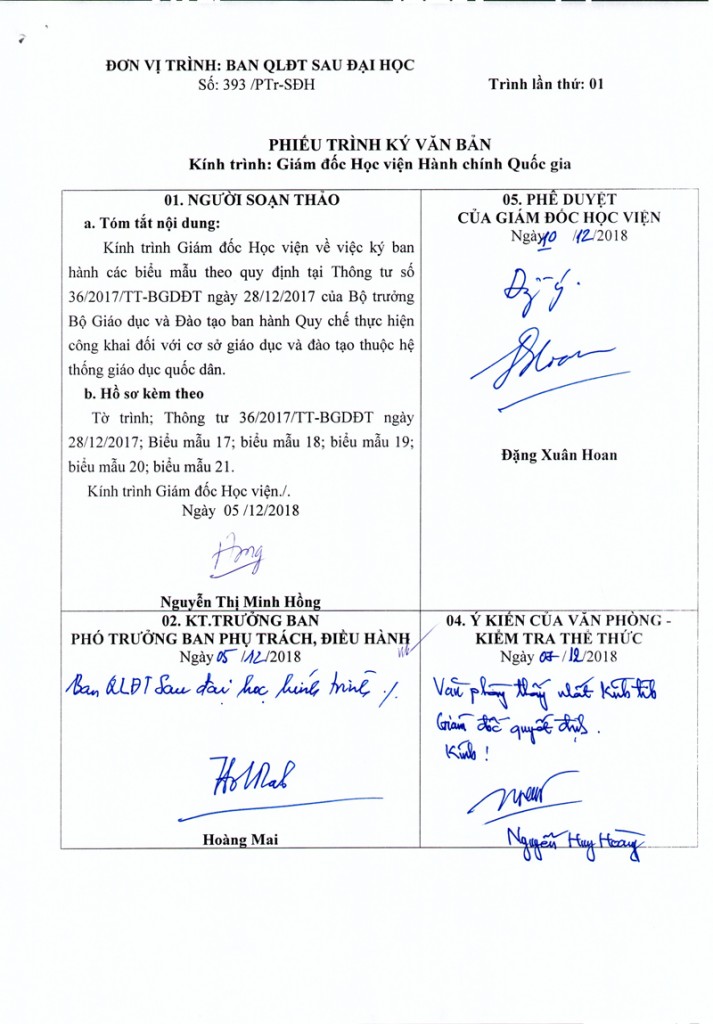 ĐƠN VỊ TRÌNH: BAN QLĐT SAU ĐẠI HỌC
Số: 393 /PTr-SĐH
Trình lần thứ: 01
PHIẾU TRÌNH KÝ VĂN BẢN
Kính trình: Giám đốc Học viện Hành chính Quốc gia
01. NGƯỜI SOẠN THẢO
a. Tóm tắt nội dung:
Kính trình Giám đốc Học viện về việc ký ban
hành các biểu mẫu theo quy định tại Thông tư số
36/2017/TT-BGDĐT ngày 28/12/2017 của Bộ trưởng
Bộ Giáo dục và Đào tạo ban hành Quy chế thực hiện
công khai đối với cơ sở giáo dục và đào tạo thuộc hệ
thống giáo dục quốc dân.
b. Hồ sơ kèm theo
Tờ trình; Thông tư 36/2017/TT-BGDĐT ngày
28/12/2017; Biểu mẫu 17; biểu mẫu 18; biểu mẫu 19;
biểu mẫu 20; biểu mẫu 21.
Kính trình Giám đốc Học viện./.
Ngày 05 /12/2018
Hồng
Nguyễn Thị Minh Hồng
05. PHÊ DUYỆT
CỦA GIÁM ĐỐC HỌC VIỆN
Ngày 10 /12/2018
Đồng ý.
Đặng Xuân Hoan
02. KT.TRƯỞNG BAN
PHÓ TRƯỞNG BAN PHỤ TRÁCH, ĐIỀU HÀNH
Ngày 05 /12/2018
Ban QLĐT Sau đại học kính trình ./.
Hoàng Mai
04. Ý KIẾN CỦA VĂN PHÒNG -
KIỂM TRA THỂ THỨC
Ngày 07 /12/2018
Văn phòng thống nhất Kính trình
Giám đốc quyết định.
Kính !
Nguyễn Huy Hoàng